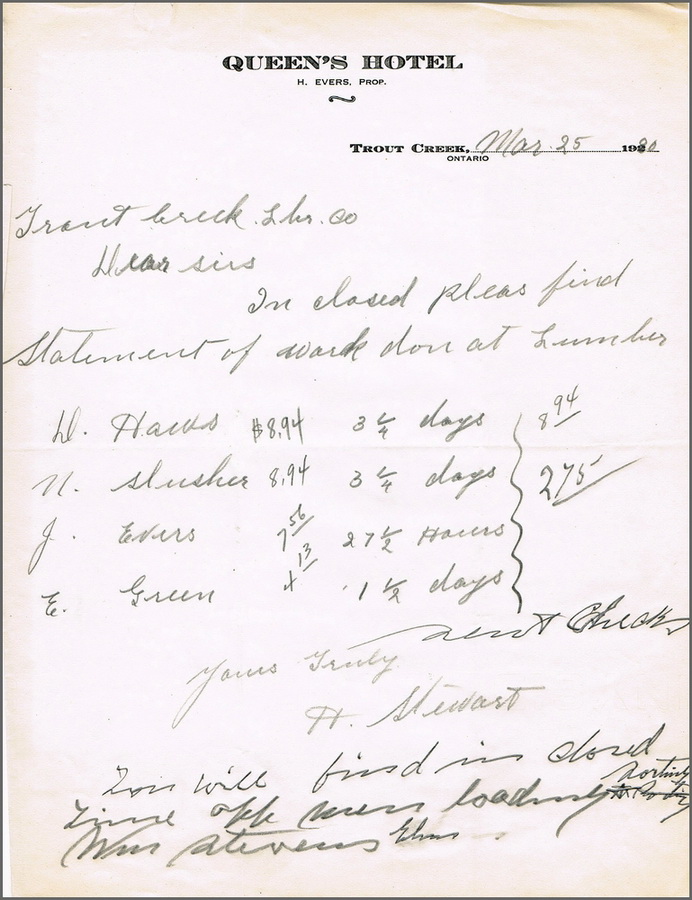 QUEEN'S HOTEL
H. EVERS, PROP.
TROUT CREEK, Mar. 25 1920
ONTARIO
Trout Creek Lbr. co
Dear sirs
In closed pleas find
Statement of work don at Lumber
D. Haws $8.94 3 1/4 days 8 94
N. Slusher 8.94 3 1/4 days 275
J. Evers 7 56 27 1/2 Hours
E. Green 4 13 1 1/2 days
sent Checks
Yours Truly
H. Stewart
You will find in closed
Sorting
time off men loading
Wm Stevens Elm